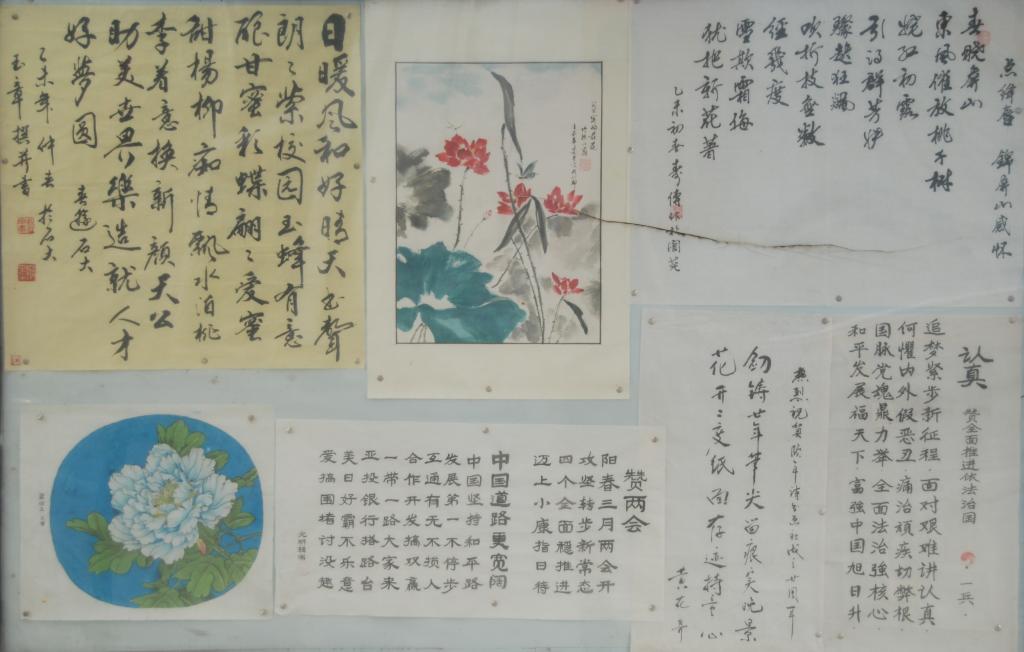 日暖风和好晴天
朗々紫校园玉蜂有意
甘蜜彩蝶翩々爱蜜
甜杨柳痴情飘水泊桃
李着意换新颜天公
助美世界乐造就人才
好梦圆
乙未年仲春于石大
玉章撰并书
点绛唇 锦屏山感怀
春晓屏山
东风催放桃千树
娆红初露
引得群芳妒
骤起狂飙
吹折枝无数
经几度
雪欺霜侮
犹把新花著
认真
赞全面推进依法治国
追梦紧步新征程·面对艰难讲认真
何惧内外假恶丑·痛治顽疾切弊根
国脉党魂鼎力举·全面法治强核心
和平发展福天下·富强中国旭日升
一兵
赞两会
阳春三月两会开
攻坚转步新常态
四个全面稳推进
迈上小康指日待
中国道路更宽阔
中国坚持和平路
发展第一不停步
互通有无不损人
合作开发搞双赢
一带一路大家来
亚投银行搭路台
美日好霸不乐意
爱搞围堵讨没趣
廿年笔尖留痕笑晚景
花开二度纸留存迹持童心